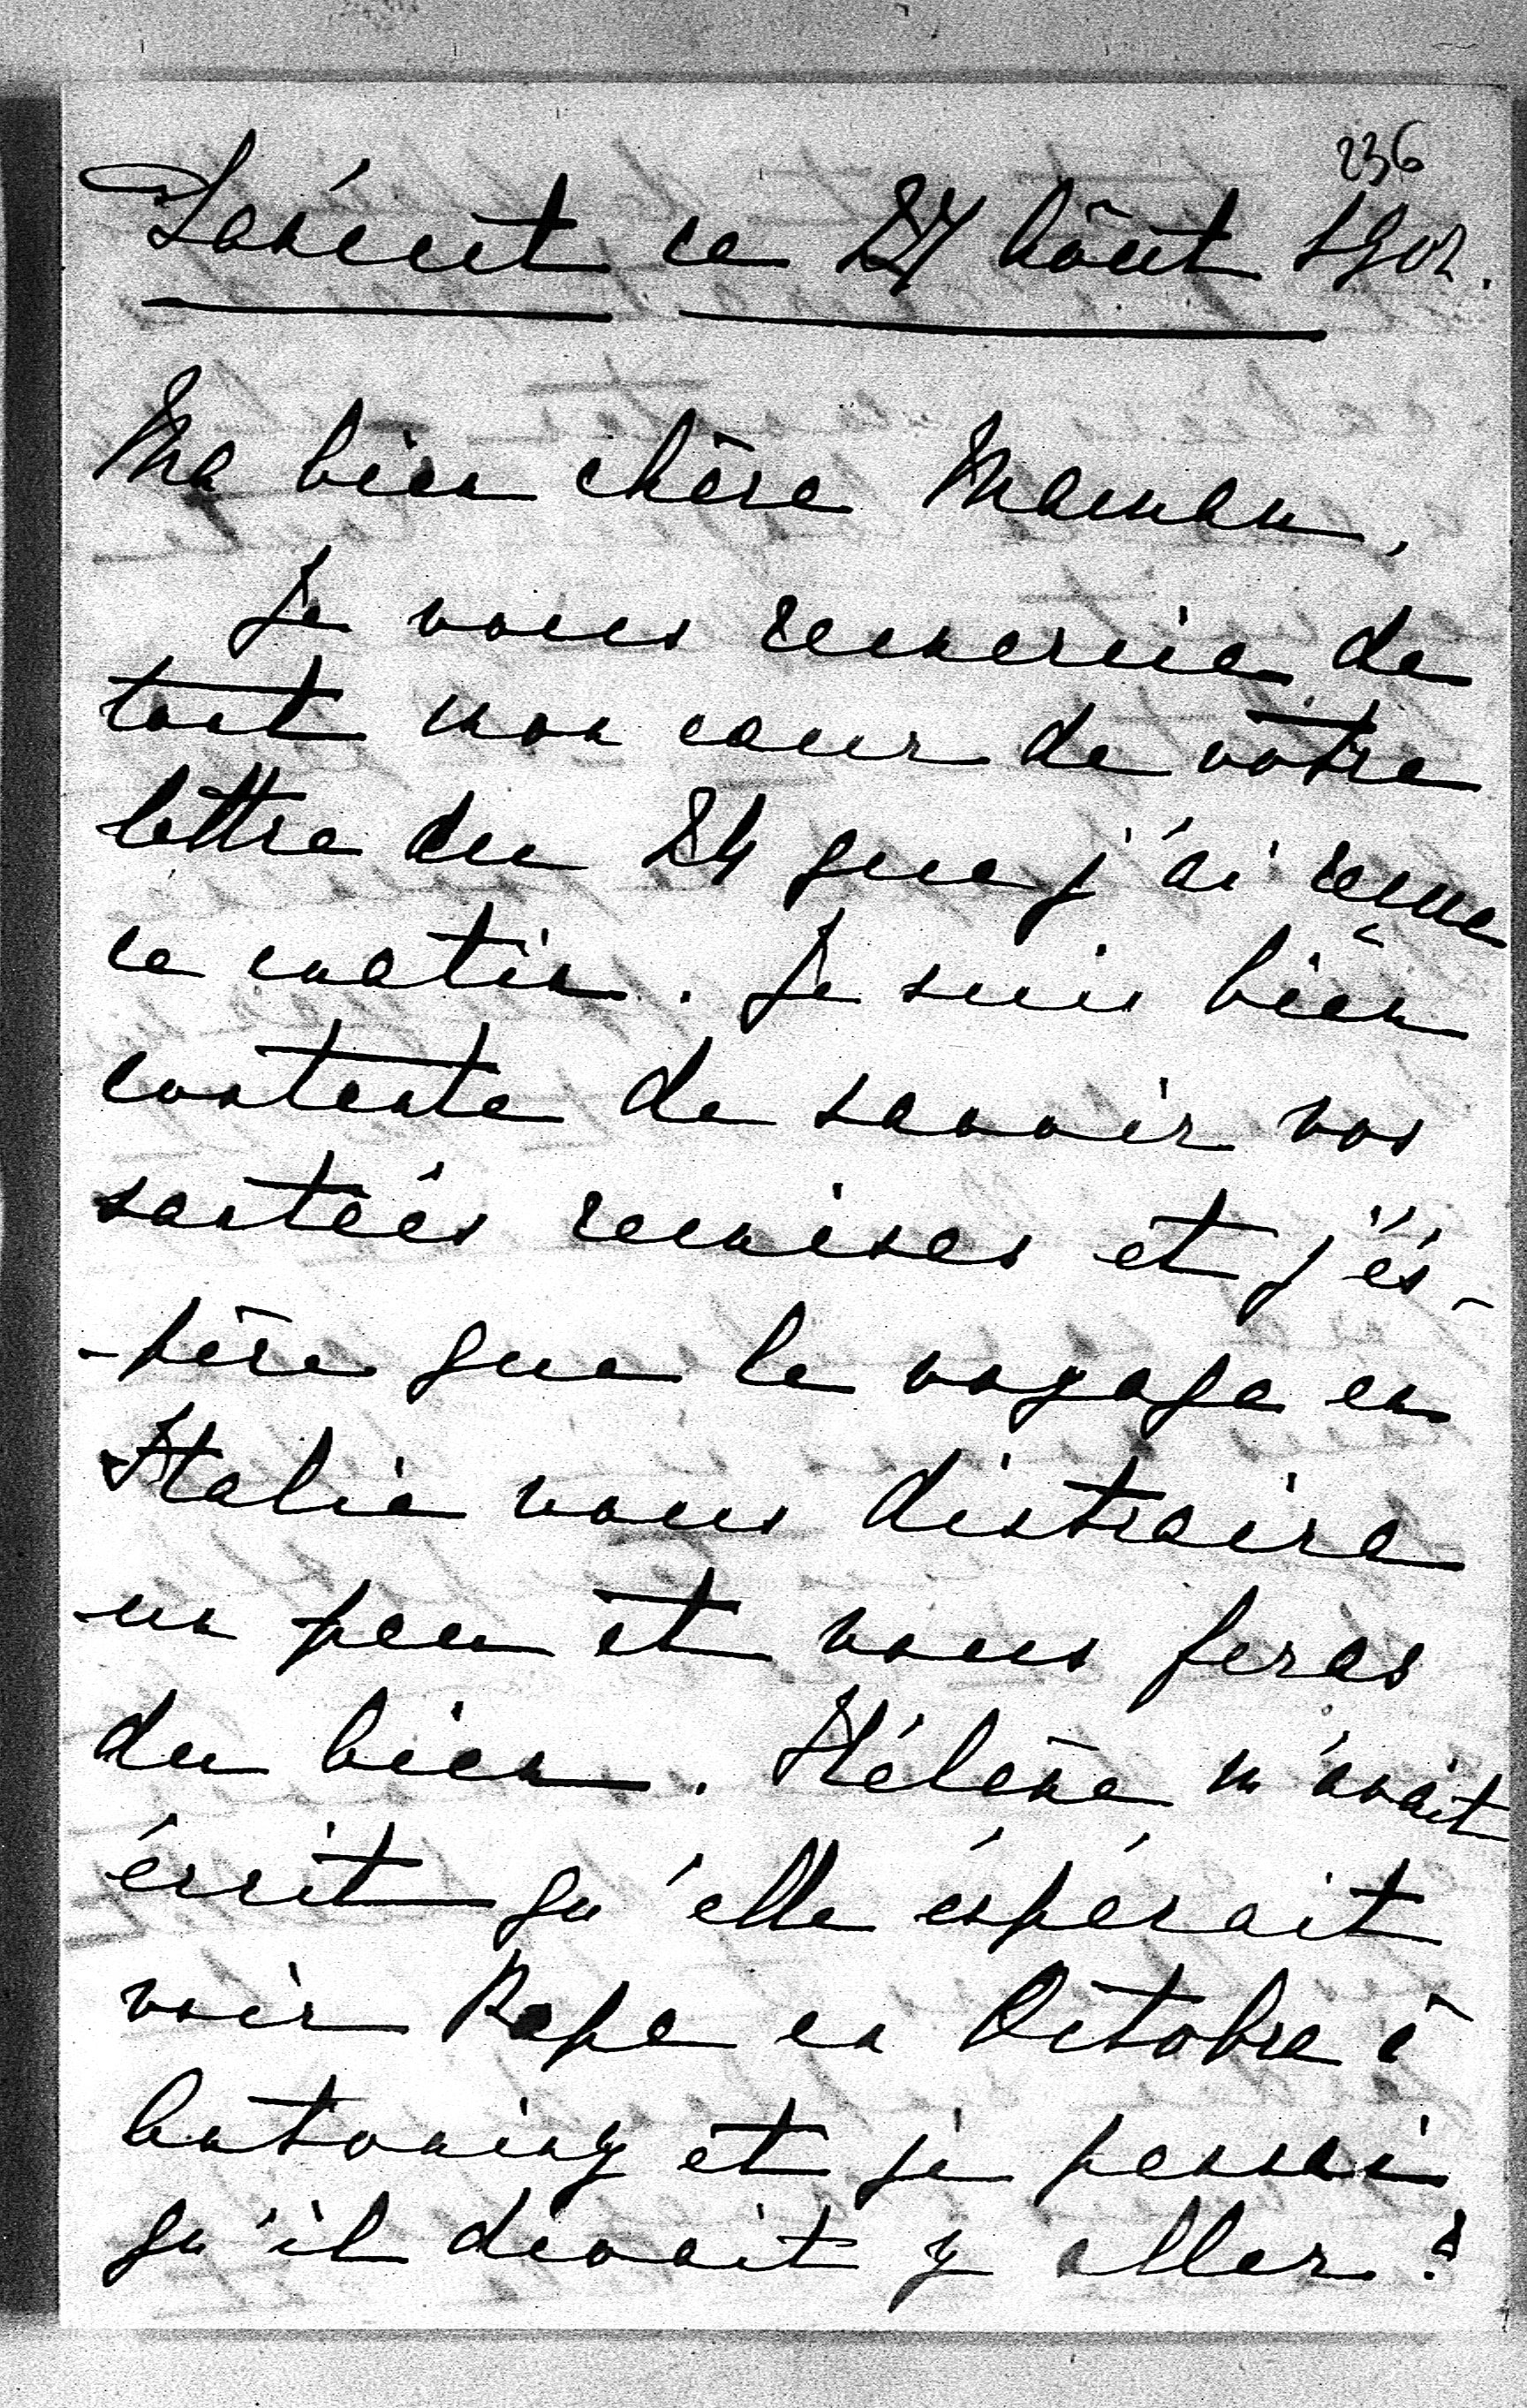 236
Lorient ce 27 Août 1902.
Ma bien chère Maman,
Je vous remercie de
tout mon cœur de vôtre
lettre du 24 que j'ai reçue
ce matin. Je suis bien
contente de savoir vos
santées remises et j'és-
-père que le voyage en
Italie vous distraira
un peu et vous feras
du bien. Hélène m'avait
écrit qu'elle éspérait
voir Papa en Octobre à
Antoniny et je pensai
qu'il dévait y aller?